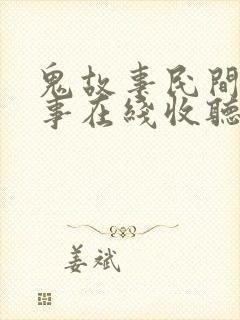 鬼故事民間
事在綫收聽
姜斌